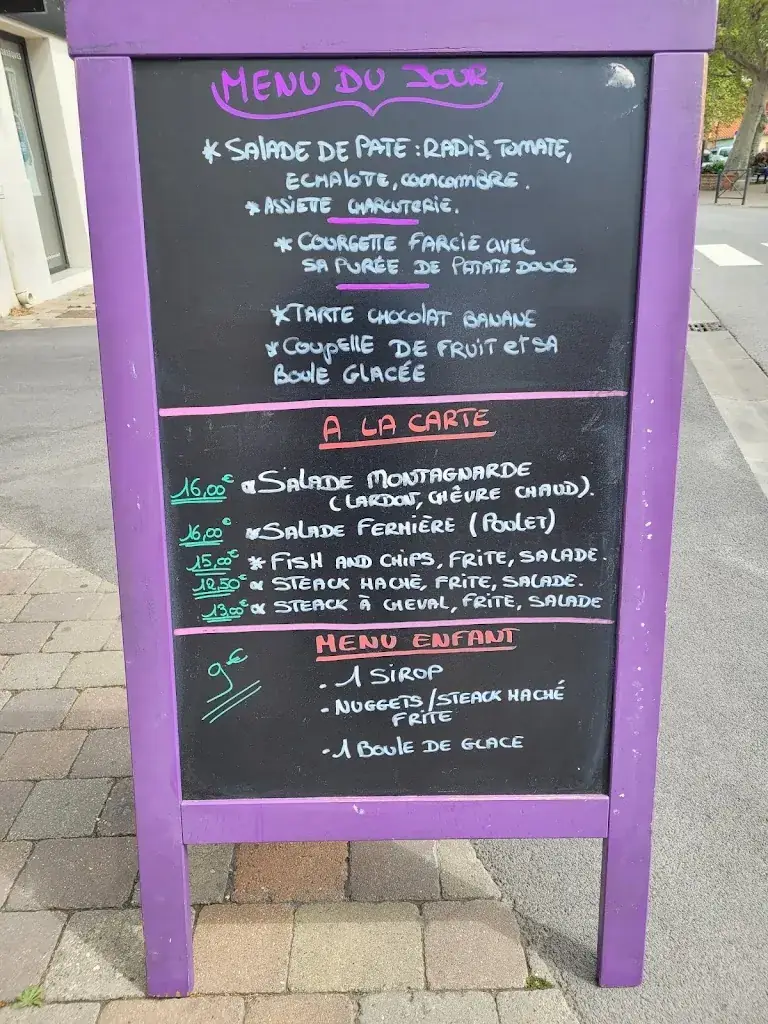 MENU DU JOUR
* SALADE DE PATE : RADIS, TOMATE,
ECHALOTE, CONCOMBRE.
* ASSIETE CHARCUTERIE.
* COURGETTE FARCIE AVEC
SA PURÉE DE PATATE DOUCE
* TARTE CHOCOLAT BANANE
* COUPELLE DE FRUIT et SA
BOULE GLACÉE
A LA CARTE
16,00€ * SALADE MONTAGNARDE
(LARDON, CHÈVRE CHAUD).
16,00€ * SALADE FERMIÈRE (POULET)
15,00€ * FISH AND CHIPS, FRITE, SALADE.
12,50€ * STEACK HACHÉ, FRITE, SALADE.
13,00€ * STEACK À CHEVAL, FRITE, SALADE
MENU ENFANT
9€
- 1 SIROP
- NUGGETS/STEACK HACHÉ
FRITE
- 1 BOULE DE GLACE